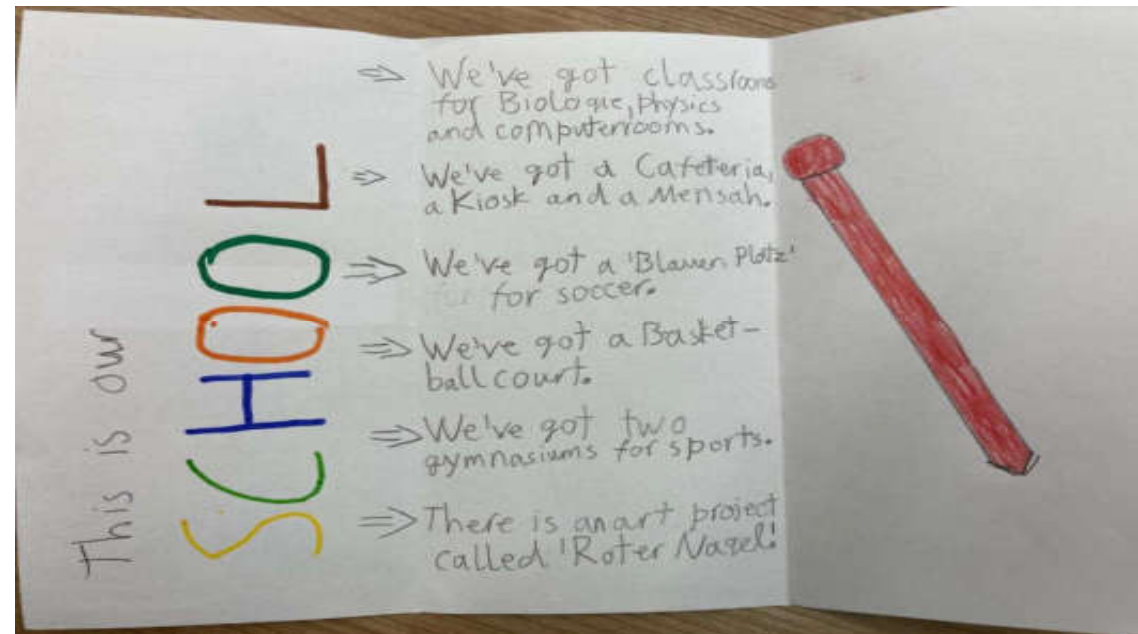 This is our
SCHOOL
⇒ We've got classrooms
for Biologie, physics
and computerrooms.
⇒ We've got a Cafeteria,
a Kiosk and a Mensah.
⇒ We've got a 'Blauen Platz'
for for soccer.
⇒ We've got a Basket-
ball court.
⇒ We've got two
gymnasiums for sports.
⇒ There is an art project
called 'Roter Nagel'.